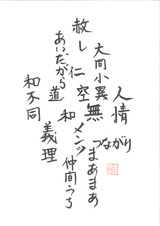 人情
つながり
大同小異
無
まあまあ
空
メンツ
仲間うち
仁
和
赦し
道
義理
あいだがら
和不同